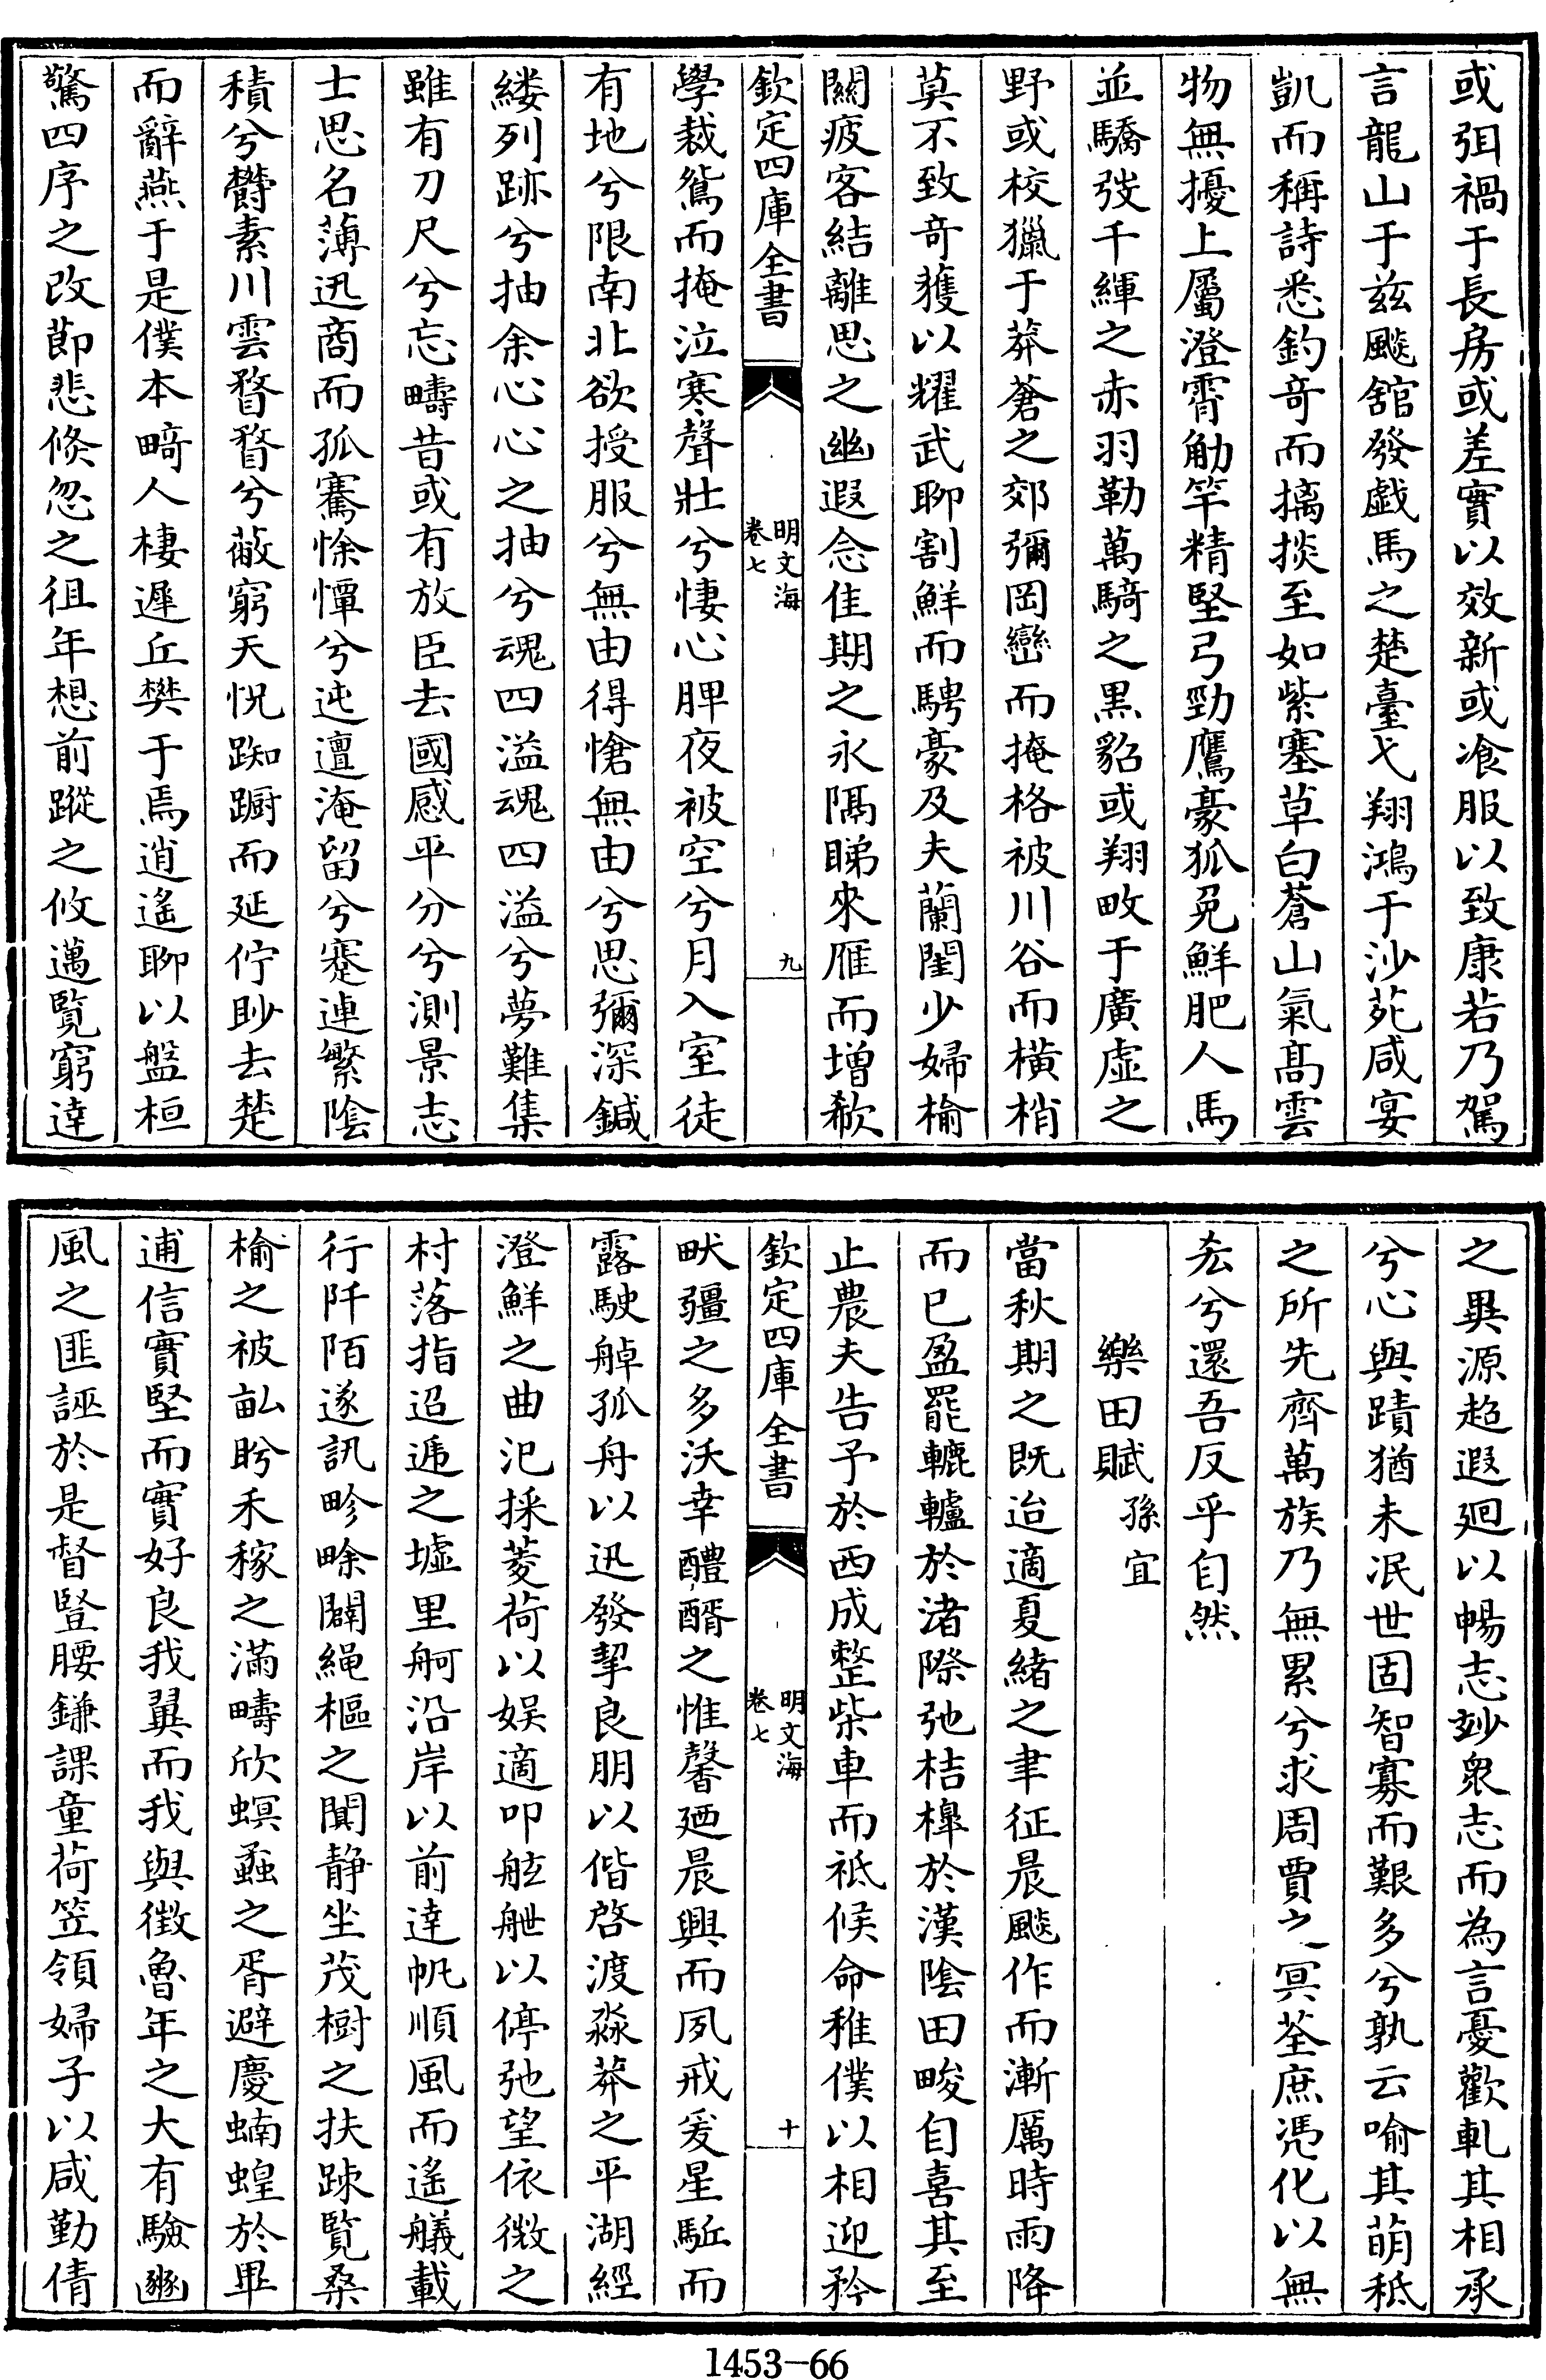 或弭禍于長房或差實以效新或飡服以致康若乃駕
言龍山于兹颷舘發戯馬之楚臺弋翔鴻于沙苑咸宴
凱而稱詩悉釣竒而摛掞至如紫塞草白蒼山氣髙雲
物無擾上屬澄霄觔竿精堅弓勁鷹豪狐兔鮮肥人馬
並驕彂千緷之赤羽勒萬騎之黒貂或翔畋于廣虚之
野或校獵于莽蒼之郊彌岡巒而掩格被川谷而橫梢
莫不致竒獲以耀武聊割鮮而騁豪及夫蘭閨少婦榆
闗疲客結離思之幽遐念佳期之永隔睇來雁而增欷
欽定四庫全書
明文海
卷七
九
學裁鴛而掩泣寒聲壯兮悽心脾夜被空兮月入室徒
有地兮限南北欲授服兮無由得愴無由兮思彌深鍼
縷列跡兮抽余心心之抽兮魂四溢魂四溢兮夢難集
雖有刀尺兮忘疇昔或有放臣去國感平分兮測景志
士思名薄迅商而孤騫悇憛兮迍邅淹留兮蹇連繁陰
積兮欝素川雲瞀瞀兮蔽窮天怳踟蹰而延佇眇去楚
而辭燕于是僕本畸人棲遲丘樊于焉逍遙聊以盤桓
驚四序之改節悲倏忽之徂年想前蹤之攸邁覧窮達
之異源超遐廻以暢志妙衆志而為言憂歡軋其相承
兮心與蹟猶未泯世固智寡而艱多兮孰云喻其萌秪
之所先齊萬族乃無累兮求周賈之冥荃庶憑化以無
厺兮還吾反乎自然
樂田賦孫宜
當秋期之既迨適夏緒之聿征晨颷作而漸厲時雨降
而已盈罷轆轤於渚際弛桔橰於漢陰田畯自喜其至
止農夫告予於西成整柴車而祗候命稚僕以相迎矜
畎疆之多沃幸醴醑之惟馨廼晨興而夙戒爰星駈而
露駛舴孤舟以迅發挈良朋以偕啓渡淼莽之平湖經
澄鮮之曲汜採菱荷以娱適叩舷舭以停弛望依微之
村落指迢遞之墟里舸沿岸以前達帆順風而遙艤載
行阡陌遂訊畛畭闢繩樞之闃静坐茂樹之扶踈覧桑
榆之被畝眄禾稼之滿疇欣螟蟊之胥避慶蝻蝗於畢
逋信實堅而實好良我翼而我與徴魯年之大有驗豳
風之匪誣於是督豎腰鎌課童荷笠領婦子以咸勤倩
欽定四庫全書
明文海
卷七
十
1453-66